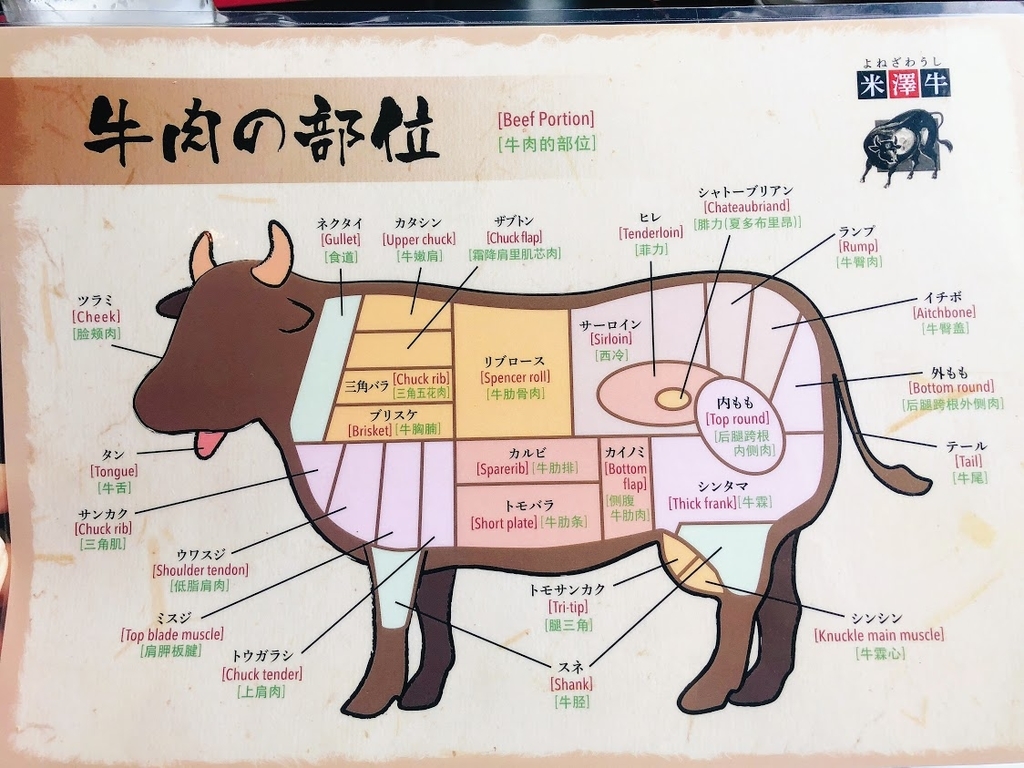 よねざわうし
米澤牛
牛肉の部位
[Beef Portion]
[牛肉的部位]
ネクタイ
[Gullet]
[食道]
カタシン
[Upper chuck]
[牛嫩肩]
ザブトン
[Chuck flap]
[霜降肩里肌芯肉]
ヒレ
[Tenderloin]
[菲力]
シャトーブリアン
[Chateaubriand]
[腓力(夏多布里昂)]
ランプ
[Rump]
[牛臀肉]
ツラミ
[Cheek]
[脸颊肉]
イチボ
[Aitchbone]
[牛臀盖]
サーロイン
[Sirloin]
[西冷]
リブロース
[Spencer roll]
[牛肋骨肉]
三角バラ [Chuck rib]
[三角五花肉]
ブリスケ
[Brisket] [牛胸腩]
外もも
[Bottom round]
[后腿跨根外侧肉]
内もも
[Top round]
[后腿跨根
内侧肉]
タン
[Tongue]
[牛舌]
カルビ
[Sparerib] [牛肋排]
カイノミ
[Bottom
flap]
[侧腹
牛肋肉]
テール
[Tail]
[牛尾]
サンカク
[Chuck rib]
[三角肌]
トモバラ
[Short plate] [牛肋条]
シンタマ
[Thick frank] [牛霖]
ウワスジ
[Shoulder tendon]
[低脂肩肉]
ミスジ
[Top blade muscle]
[肩胛板腱]
トウガラシ
[Chuck tender]
[上肩肉]
トモサンカク
[Tri-tip]
[腿三角]
スネ
[Shank]
[牛胫]
シンシン
[Knuckle main muscle]
[牛霖心]